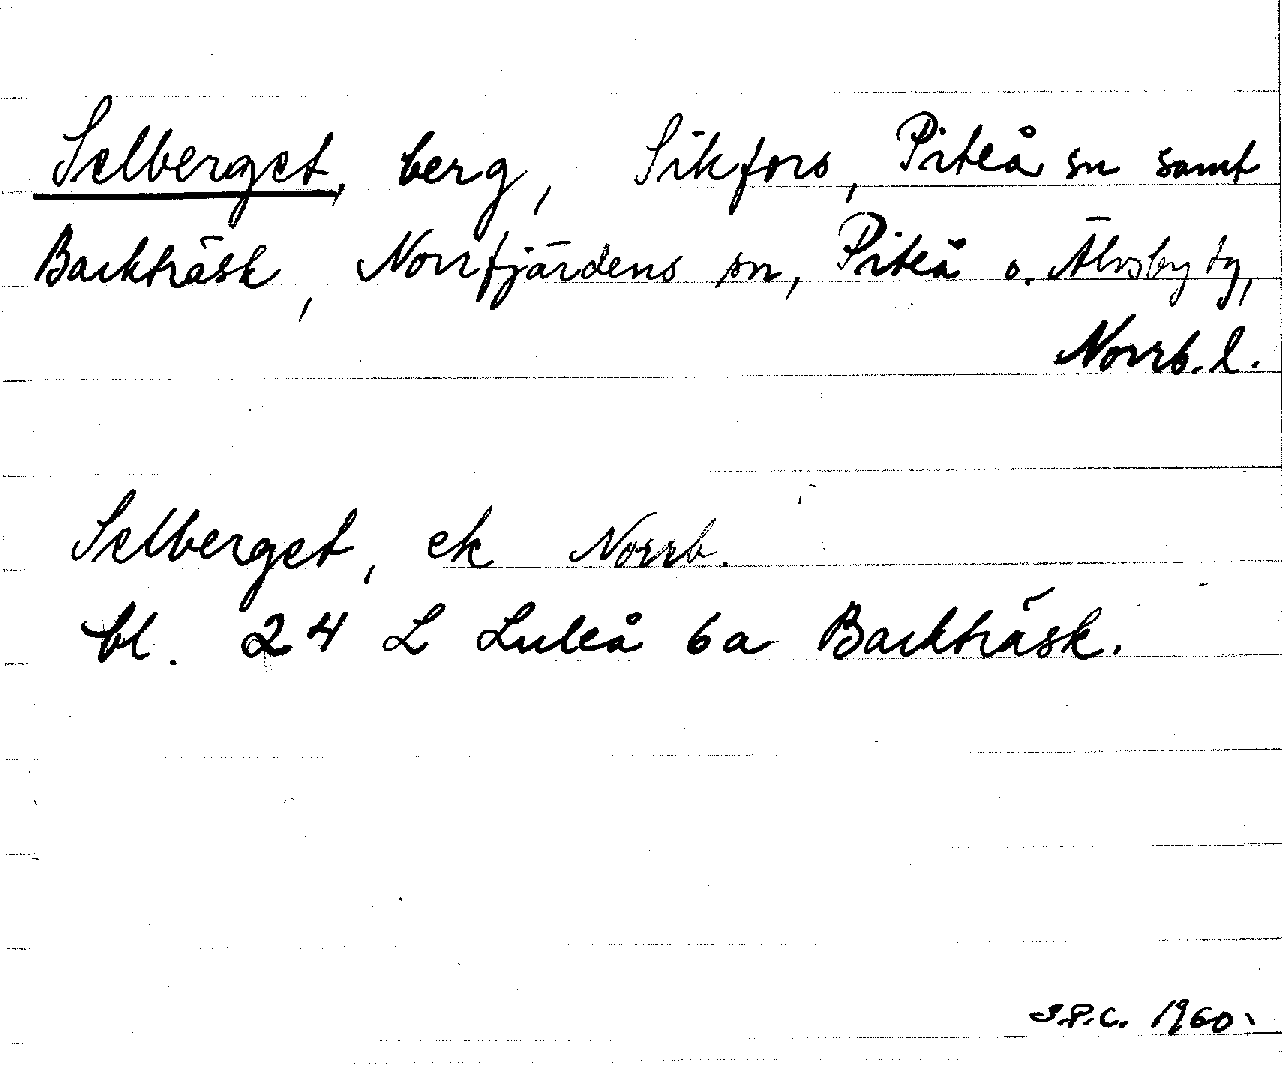 Selberget, berg, Sikfors, Piteå sn samt
Backträsk, Norrfjärdens sn, Piteå o. Älvsby tg,
Norrb. l.
Selberget, ek Norrb.
bl. 24 L Luleå 6a Backträsk.
S.P.C. 1960.